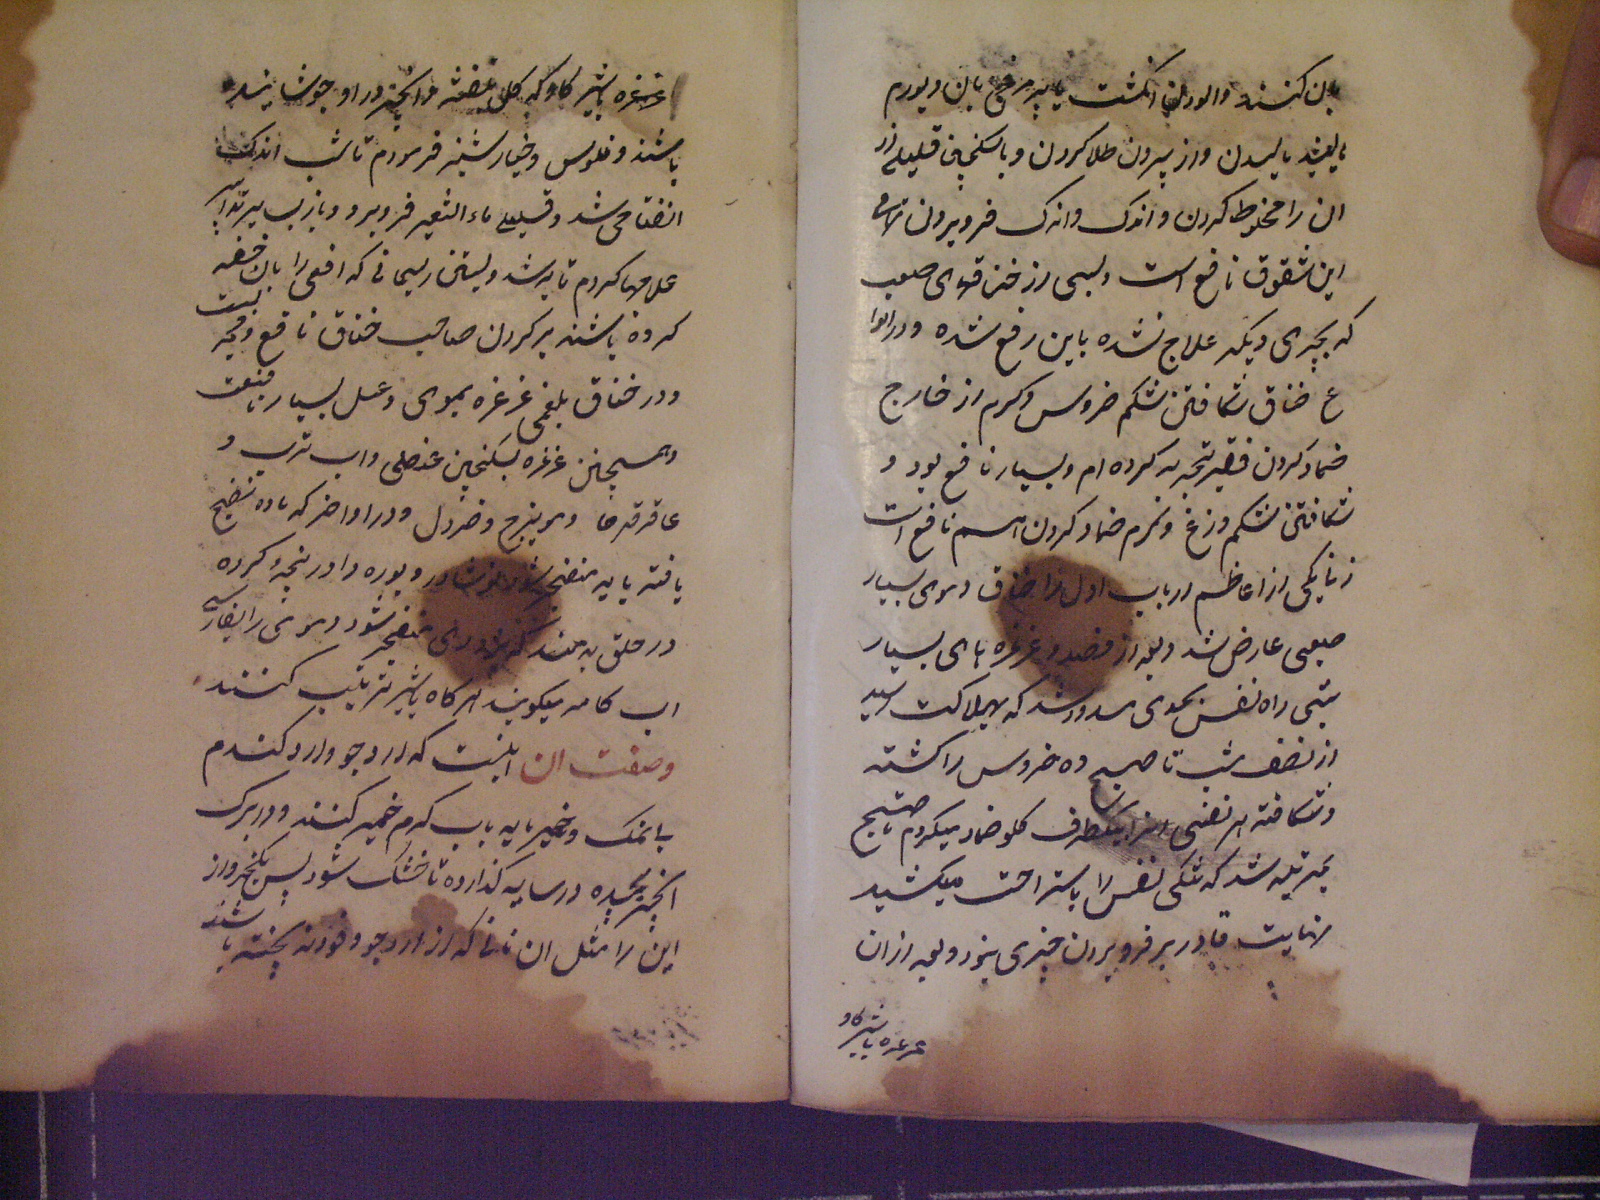 بان کنند و الوده انگشت یا پر مرغ بان و بورم
مالیدن و از بیرون طلا کردن و با سکنجبین قلیلی از
ان را مخلوط کردن و اندک و اندک فرو بردن
این شقوق نافع است و بسی از خناقهای صعب
که بچیزی دیگر علاج نشده باین رفع شده و در انواع
ع خناق شکافتن شکم خروس و گرم از خارج
ضماد کردن فقیر تجربه کرده ام و بسیار نافع بود و
شکافتن شکم وزغ و گرم ضماد کردن هم نافع است
یکی از اعاظم در باب اول خناق دموی بسیار
صعبی عارض شد و بعد از فصد و غرغره های بسیار
شبی راه نفس بحدی مسدود شد که بهلاکت رسید
از نصف شب تا صبح ده خروس را کشته
و شکافته هر نصفی را بیکطرف گلو ضماد میکردم تا صبح
بمرتبه شد که تنگی نفس را باستراحت میکشید
نهایت قادر بر فرو بردن چیزی نبود و بعد از ان
غرغره باشیر گاو
غرغره باشیر گاو که گل بنفشه و انجیر در او جوشانیده
باشند و فلوس و خیار شنبر فرمودم تا شب اندک
انفتاحی شد و قلیلی ماء الشعیر فرو برد و باز بسایر تدابیر
علاجها کردم تا به شد و بستن ریسمانی که افعی را بان خفه
کرده باشند بر گردن صاحب خناق نافع و مجرب است
و در خناق بلغمی غرغره بموی و عسل بسیار با منفعت
و همچنین غرغره بسکنجبین عنصلی و اب ترب و
عاقرقرحا و مویزج و خردل و در اواخر که ماده نضج
یافته باید منفجر شود نوشادر و بوره را در پنجه کرده
در حلق بدمند که بزودی منفجر شود و مری را بفارسی
اب کامه میگویند هرگاه باشیر ترتیب کنند
وصفت ان اینست که ارد جو و ارد گندم
با نمک و خمیر مایه باب گرم خمیر کنند و در برگ
انجیر پیچیده در سایه گذارده تا خشک شود پس یکجزو از
این را مثل ان نانی که از ارد جو و فودنه پخته باشند